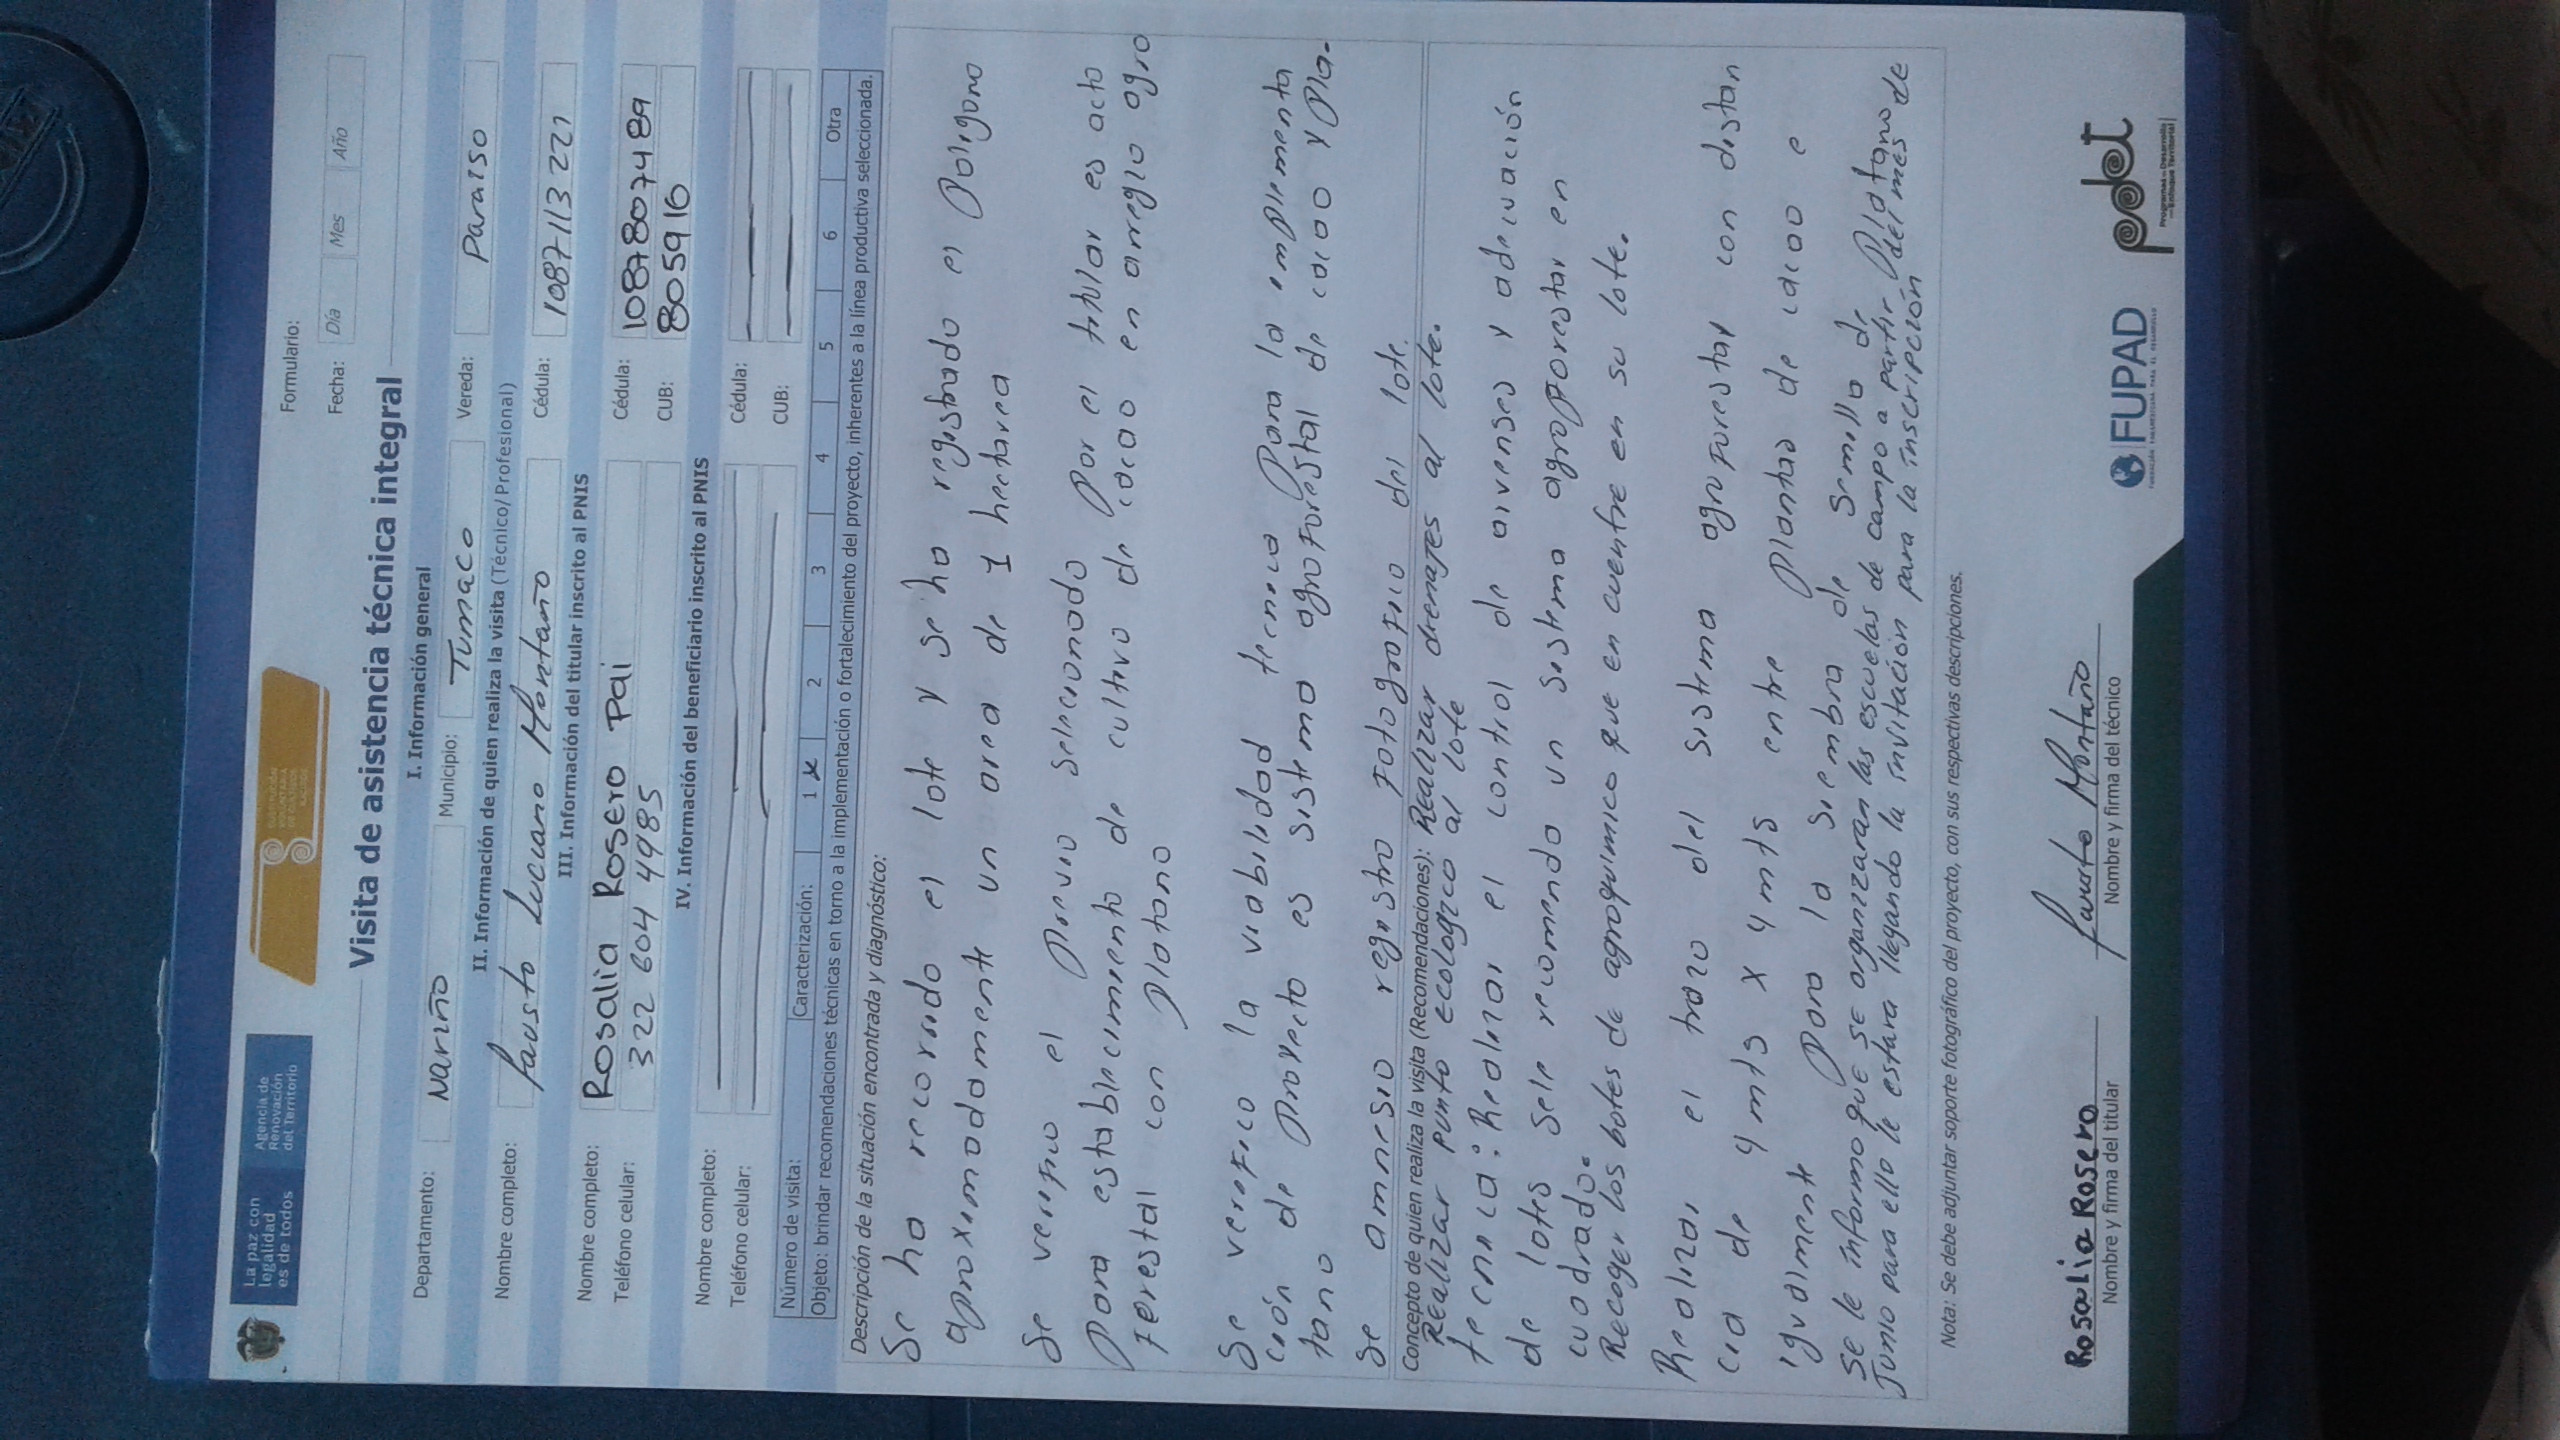 La paz con
legalidad
es de todos
Agencia de
Renovación
del Territorio
SUSTITUCIÓN
VOLUNTARIA
DE CULTIVOS
ILÍCITOS
Formulario:
Fecha: Día Mes Año
Visita de asistencia técnica integral
I. Información general
Departamento: Nariño Municipio: Tumaco Vereda: Paraiso
II. Información de quien realiza la visita (Técnico/Profesional)
Nombre completo: Fausto Luciano Montaño Cédula: 1087113221
III. Información del titular inscrito al PNIS
Nombre completo: Rosalia Rosero Pai Cédula: 1087807489
Teléfono celular: 322 604 4985 CUB: 805916
IV. Información del beneficiario inscrito al PNIS
Nombre completo: Cédula:
Teléfono celular: CUB:
Número de visita: Caracterización: 1 x 2 3 4 5 6 Otra
Objeto: brindar recomendaciones técnicas en torno a la implementación o fortalecimiento del proyecto, inherentes a la línea productiva seleccionada.
Descripción de la situación encontrada y diagnóstico:
Se ha recorrido el lote y se ha registrado el poligono
aproximadamente un area de 1 hectarea
Se verifico el previo selecionado por el titular es acto
para establecimiento de cultivo de cacao en arreglo agro
Forestal con platano
Se verifico la viabilidad tecnica para la implementa
ción de proyecto es sistema agroforestal de cacao y pla-
tano
Se amnesio registro fotografico del lote.
Concepto de quien realiza la visita (Recomendaciones): Realizar drenajes al lote.
Realizar punto ecologico al lote
tecnica: Realizar el control de arvenses y adecuación
de lotes sele recomendo un sistema agroforestar en
cuadrado.
Recoger los botes de agroquimico que en cuentre en su lote.
Realizar el trazo del sistema agroforestar con distan
cia de 4 mts x 4 mts entre plantas de cacao e
igualmente para la siembra de semilla de platano
Se le informo que se organizaran las escuelas de campo a partir del mes de
Junio para ello le estara llegando la invitación para la inscripción
Nota: Se debe adjuntar soporte fotográfico del proyecto, con sus respectivas descripciones.
Rosalia Rosero Fausto Montaño
Nombre y firma del titular Nombre y firma del técnico
FUPAD
FUNDACIÓN PANAMERICANA PARA EL DESARROLLO
pdet
Programas de Desarrollo
con Enfoque Territorial